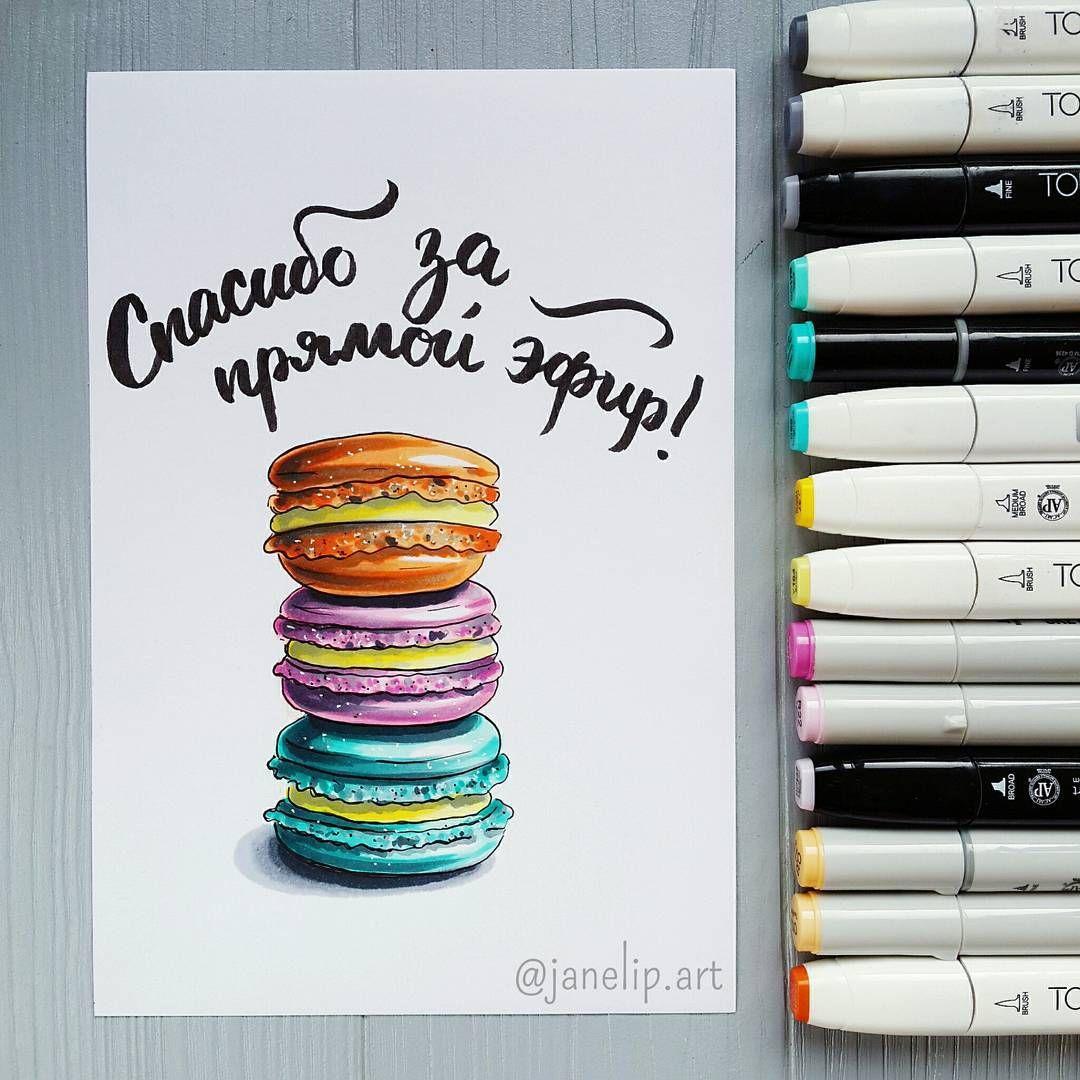 Спасибо за
прямой эфир!
@janelip.art
BRUSH
TO
BRUSH
TO
FINE
TO
BRUSH
TO
FINE
MEDIUM
BROAD
AP
BRUSH
TO
BROAD
AP
BRUSH
TO